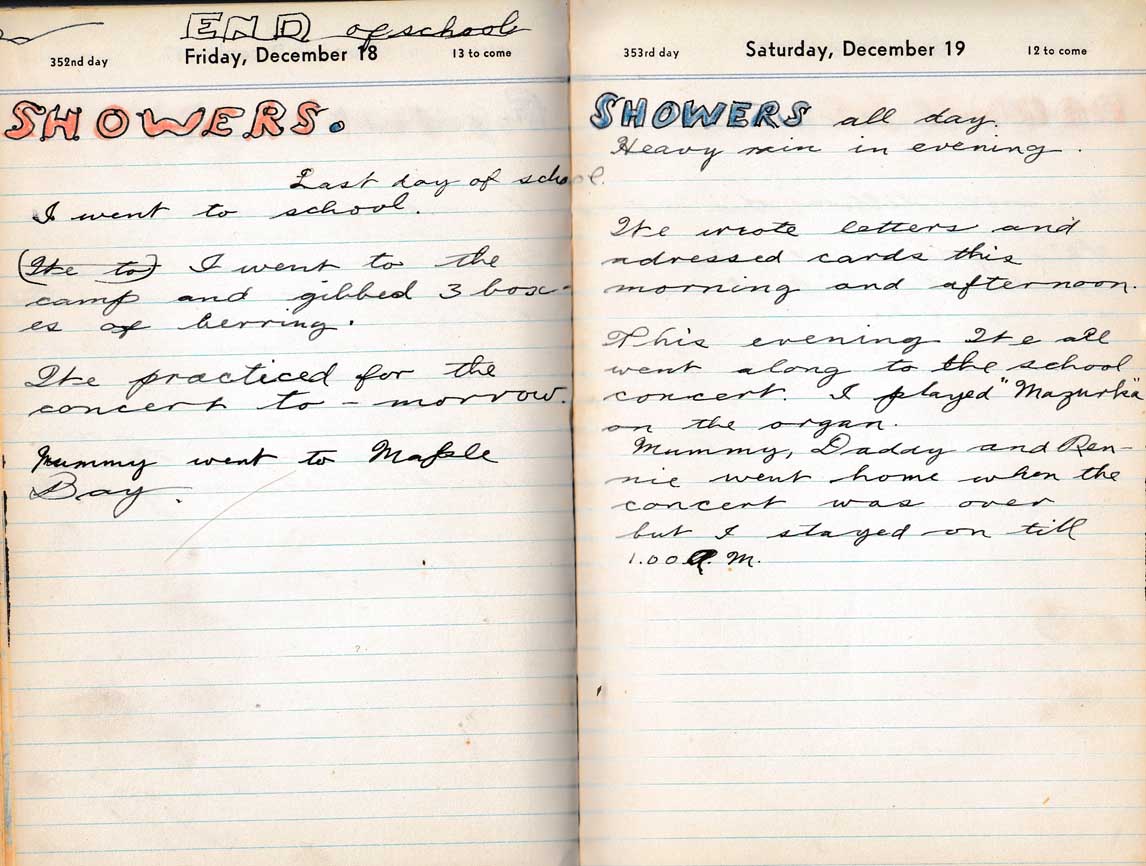 END of school
352nd day
Friday, December 18
13 to come
SHOWERS.
Last day of school.
I went to school.
(We to) I went to the
camp and gibbed 3 box-
es of herring.
We practiced for the
concert to-morrow.
Mummy went to Maple
Bay.
353rd day
Saturday, December 19
12 to come
SHOWERS all day.
Heavy rain in evening.
We wrote letters and
adressed cards this
morning and afternoon.
This evening We all
went along to the school
concert. I played "Mazurka"
on the organ.
Mummy, Daddy and Ren-
nie went home when the
concert was over
but I stayed on till
1.00 A.M.